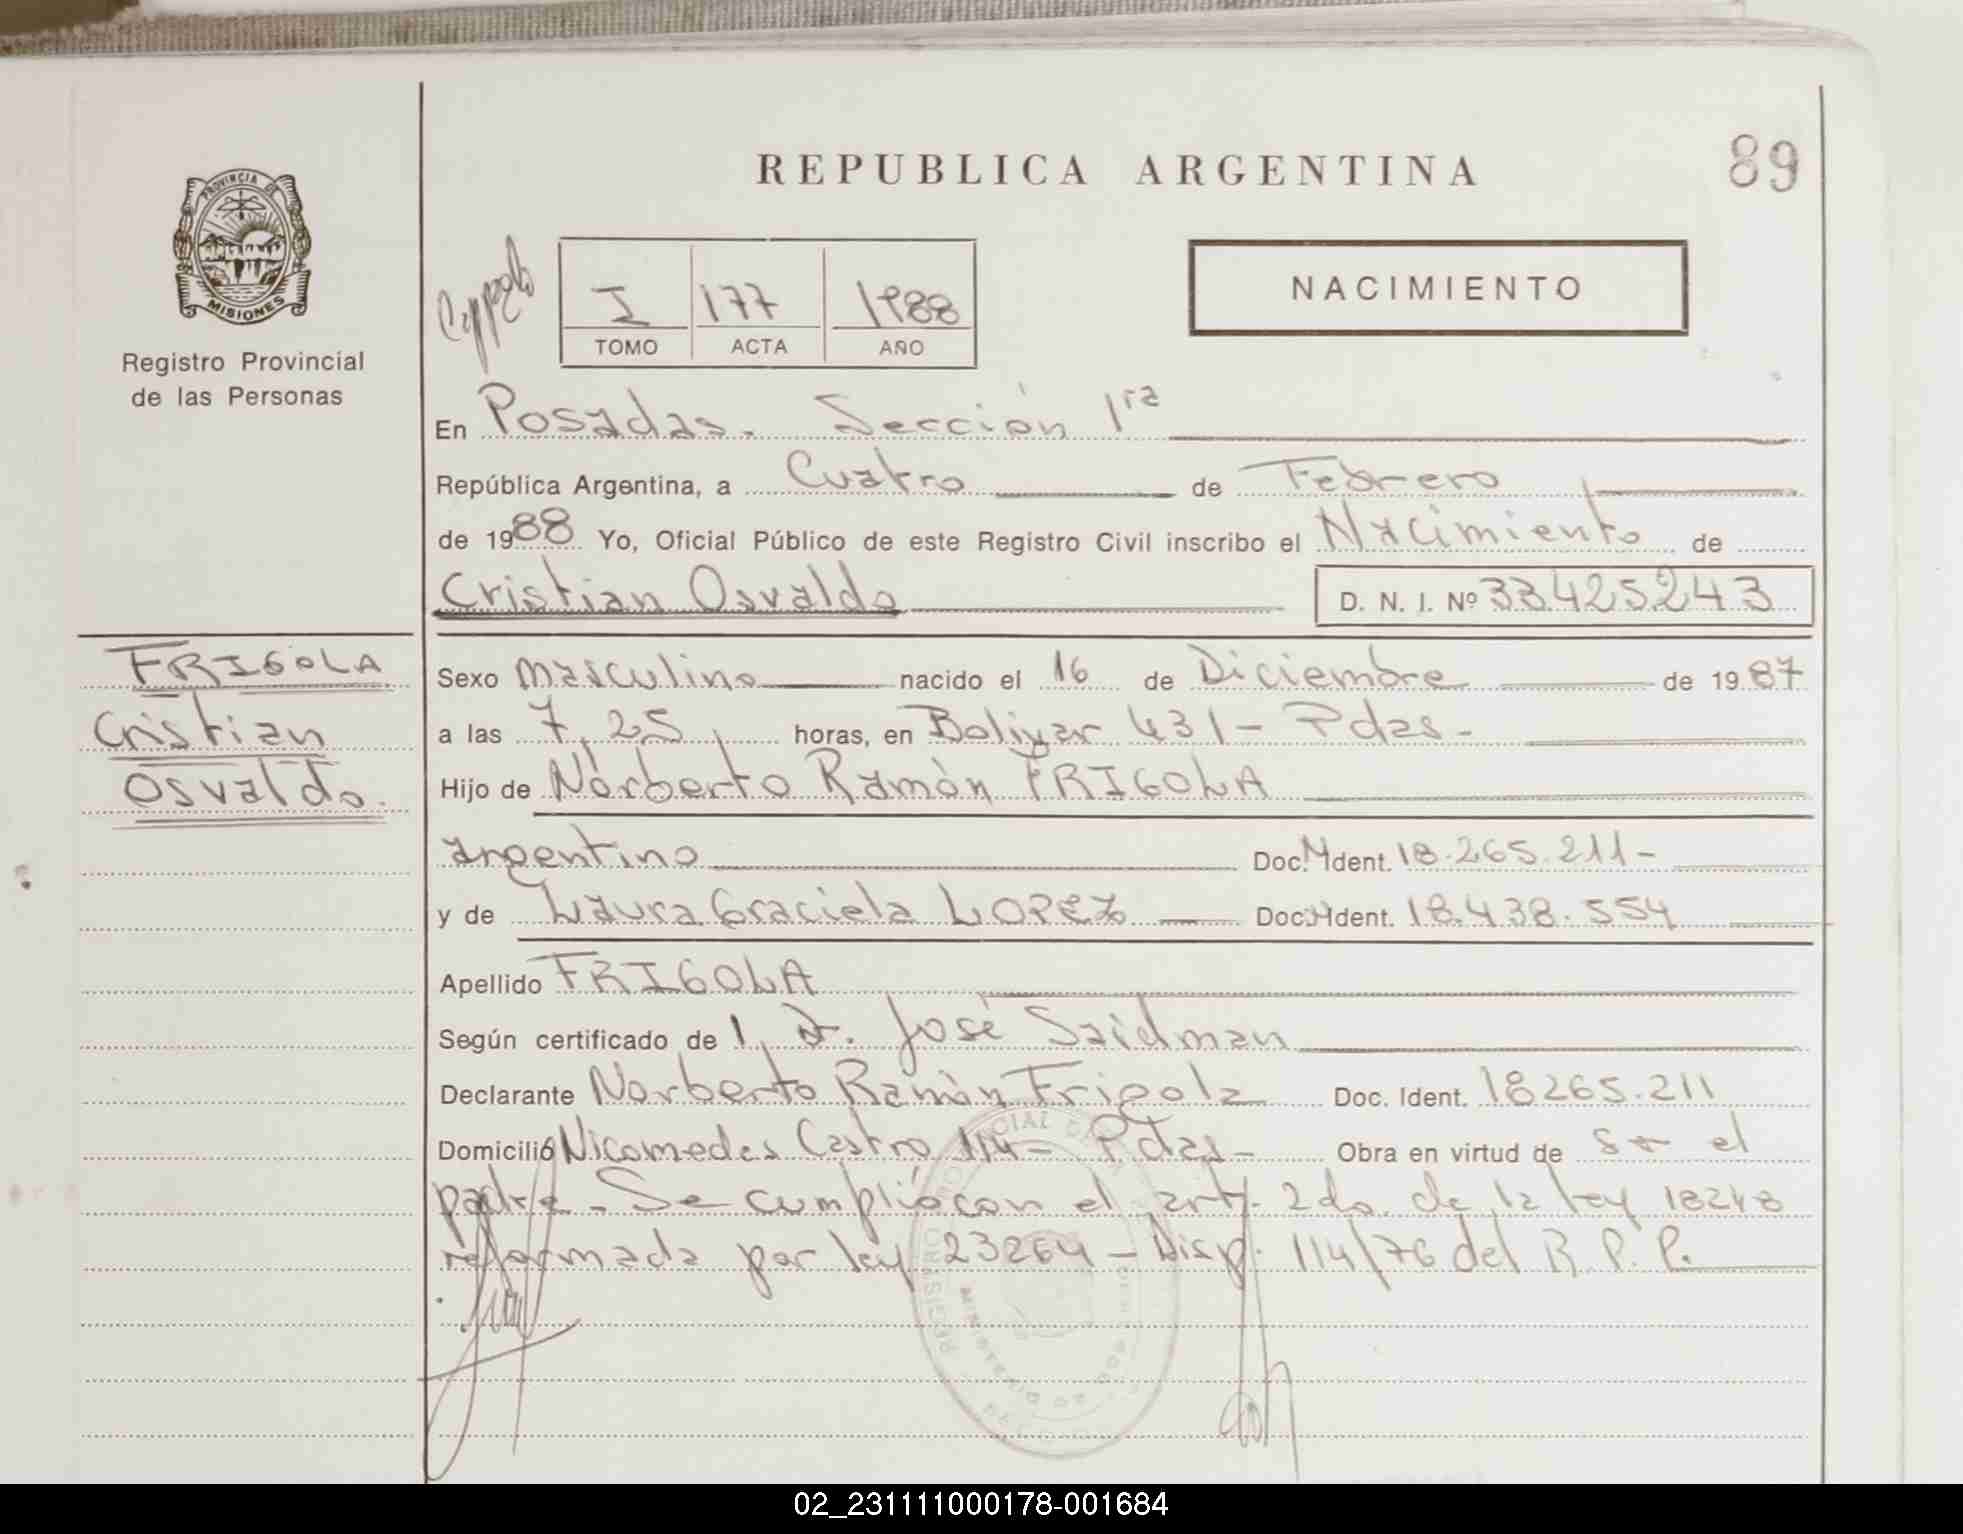 REPUBLICA ARGENTINA
89
PROVINCIA DE
MISIONES
Registro Provincial
de las Personas
I 177 1988
TOMO ACTA AÑO
NACIMIENTO
En Posadas. Sección 1ra
República Argentina, a Cuatro de Febrero
de 1988 Yo, Oficial Público de este Registro Civil inscribo el Nacimiento de
Cristian Osvaldo D. N. I. Nº 33.425.243
FRIGOLA
Cristian
Osvaldo.
Sexo Masculino nacido el 16 de Diciembre de 1987
a las 7,25 horas, en Bolivar 431 - Pdas.-
Hijo de Norberto Ramón FRIGOLA
argentino Doc. Ident. 18.265.211-
y de Laura Graciela LOPEZ Doc. Ident. 18.438.554
Apellido FRIGOLA
Según certificado de l, Dr. José Saidman
Declarante Norberto Ramòn Frigola Doc. Ident. 18265.211
Domicilio Nicomedes Castro 114 - Pdas - Obra en virtud de ser el
padre - Se cumplió con el art. 2do. de la ley 18248
reformada por ley 23264 - Disp. 114/76 del R. P. P.
02_231111000178-001684